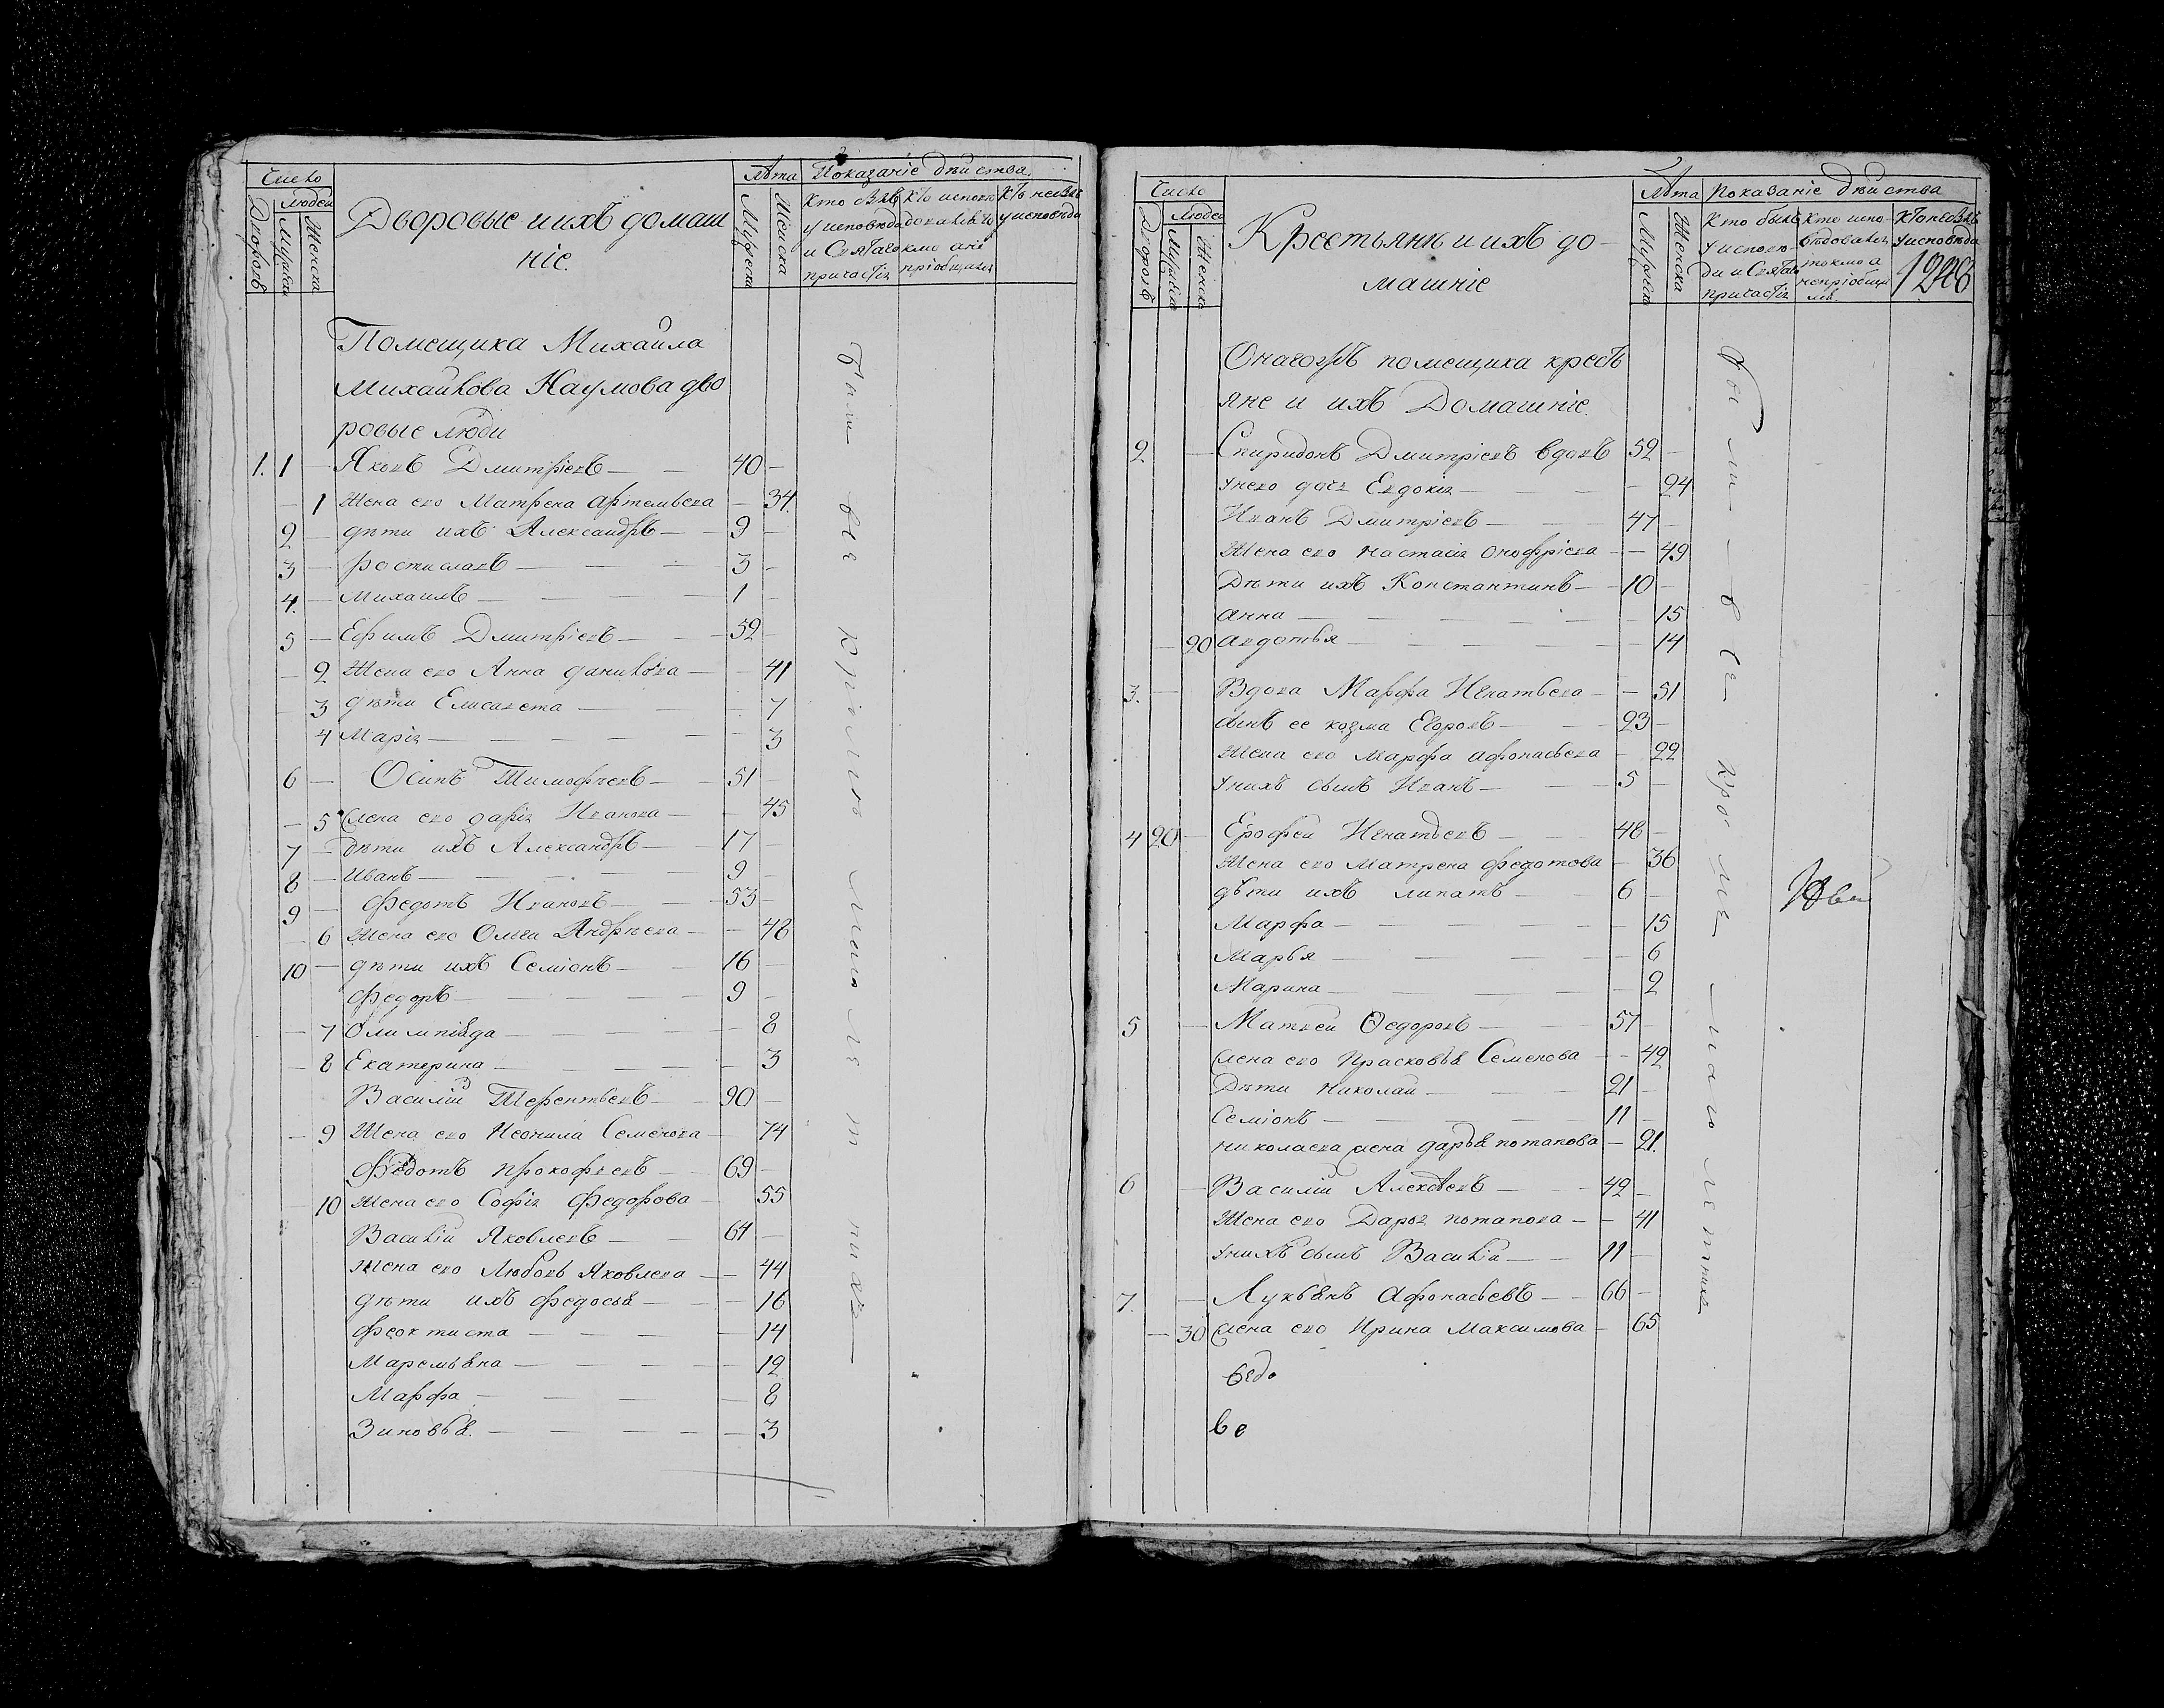 Число
Людей
Дворовъ
Мужеска
Женска
Дворовые и ихъ домаш
ніе.
Лѣта
Мужеска
Женска
Показаніе дѣйства.
Кто былъ
у исповѣди
и Святаго
причастія
Помещика Михайла
Михайлова Наумова дво
ровые люди
1. 1 — Яковъ Дмитріевъ — — 40 —
— 1 Жена его Матрена Артемьева — 34.
2 — дѣти ихъ Александръ — — 9 —
3 — Ростиславъ — — — 3 —
4. — Михаилъ — — — — 1 —
5 — Ефимъ Дмитріевъ — — 52 —
— 2 Жена его Анна Данилова — — 41
— 3 дѣти Елисавета — — — 7
4 Марія — — — — — 3
6 — Осипъ Тимофѣевъ — — 51 —
— 5 Жена его Дарія Иванова — — 45
7 — дѣти ихъ Александръ — 17 —
8 — Иванъ — — — — 9 —
9 — Федотъ Ивановъ — — 53 —
— 6 Жена его Ольга Андрѣева — — 48
10 — дѣти ихъ Семіонъ — — 16 —
Федоръ — — — — 9 —
— 7 Олимпіада — — — — 8
— 8 Екатерина — — — — 3
Василій Терентьевъ — — 90 —
— 9 Жена его Неонила Семенова — 74
Федотъ Прокофьевъ — — 69 —
— 10 Жена его Софія Федорова — 55
Василій Яковлевъ — — 64 —
Жена его Любовь Яковлева — — 44
дѣти ихъ Федосья — — — 16
Феоктиста — — — — 14
Маремьяна — — — — 12
Марфа — — — — 8
Зиновья. — — — — — 3
были все кроме малолетнихъ
Число
Людей
Дворовъ
Мужеска
Женска
Крестьянѣ и ихъ до-
машніе
Лѣта
Мужеска
Женска
Показаніе дѣйства
Кто былъ
у исповѣ-
ди и Святаго
причастія
Кто испо-
вѣдовался
токмо а
непріобщи
1248
Онагожъ помещика кресть
яне и ихъ Домашніе.
2. — Спиридонъ Дмитріевъ вдовъ 52 —
у него дочь Евдокія — — — — 24
Иванъ Дмитріевъ — — — 47 —
Жена его Настасія Онофріева — — 49
Дѣти ихъ Константинъ — 10 —
Анна — — — — — 15
— 20 Авдотья — — — — — 14
3. — Вдова Марфа Игнатьева — — 51
сынъ ее Козма Егоровъ — — 23 —
Жена его Марфа Афонасьева — 22
у нихъ сынъ Иванъ — — — 5 —
4 20 — Ерофей Игнатьевъ — — 48 —
Жена его Матрена Федотова — 36
дѣти ихъ Липатъ — — 6 —
Марфа — — — — — 15
Марья — — — — 6
Марина — — — — 2
5 — Матвей Федоровъ — — 57 —
Жена его Прасковья Семенова — — 42
Дѣти Николай — — — 21 —
Семіонъ — — — — 11 —
Николаева жена Дарья Потапова — 21.
6 — Василій Алексѣевъ — — 42 —
Жена его Дарья Потапова — — 41
у нихъ сынъ Василій — — 11 —
7. — Лукьянъ Афонасьевъ — — 66 —
— 30 Жена его Ирина Максимова — 65
были — все кроме — малолетнихъ